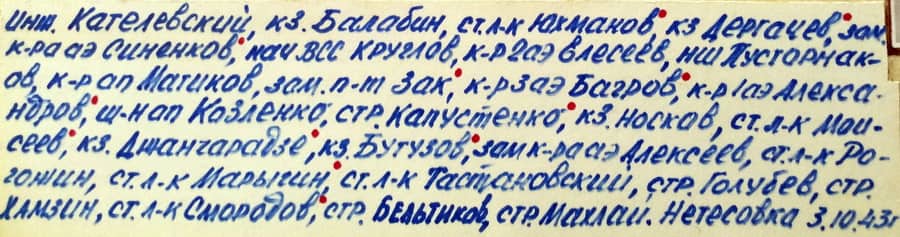 инж. Кателевский, кз. Балабин, ст.л-к Юхманов, кз Дергачев, зам.
к-ра аэ Синенков, нач ВСС Круглов, к-р 2аэ Елесеев, нш Пусторнак-
ов, к-р ап Матиков, зам. п-т Зак, к-р 3аэ Багров, к-р 1аэ Алекса-
ндров, ш-н ап Козленко, стр. Капустенко, кз. Носков, ст.л-к Мои-
сеев, кз. Джанчарадзе, кз. Бутузов, зам к-ра аэ Алексеев, ст.л-к Ро-
гожин, ст.л-к Марыгин, ст.л-к Тастановский, стр. Голубев, стр.
Хамзин, ст.л-к Смородов, стр. Бельтиков, стр. Махлай. Нетесовка 3.10.43г